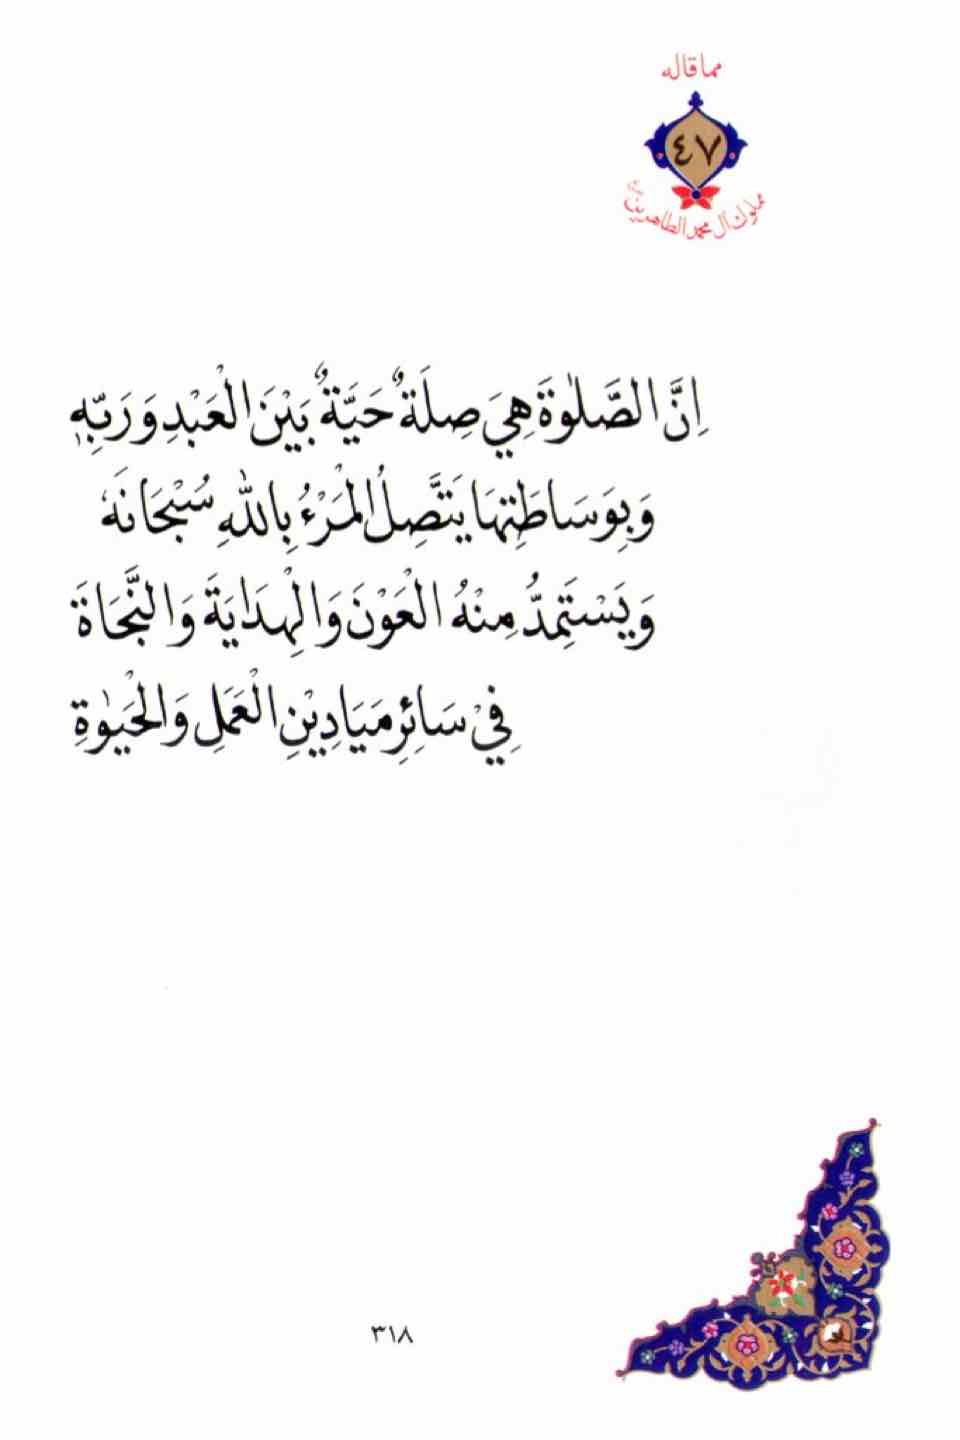 مما قاله
٤٧
مملوك آل محمد الطاهرين
اِنَّ الصَّلٰوةَ هِيَ صِلَةٌ حَيَّةٌ بَيْنَ الْعَبْدِ وَ رَبِّهٖ
وَ بِوَسَاطَتِهَا يَتَّصِلُ الْمَرْءُ بِاللّٰهِ سُبْحَانَهٗ
وَ يَسْتَمِدُّ مِنْهُ الْعَوْنَ وَ الْهِدَايَةَ وَ النَّجَاةَ
فِيْ سَائِرِ مَيَادِيْنِ الْعَمَلِ وَ الْحَيٰوةِ
٣١٨